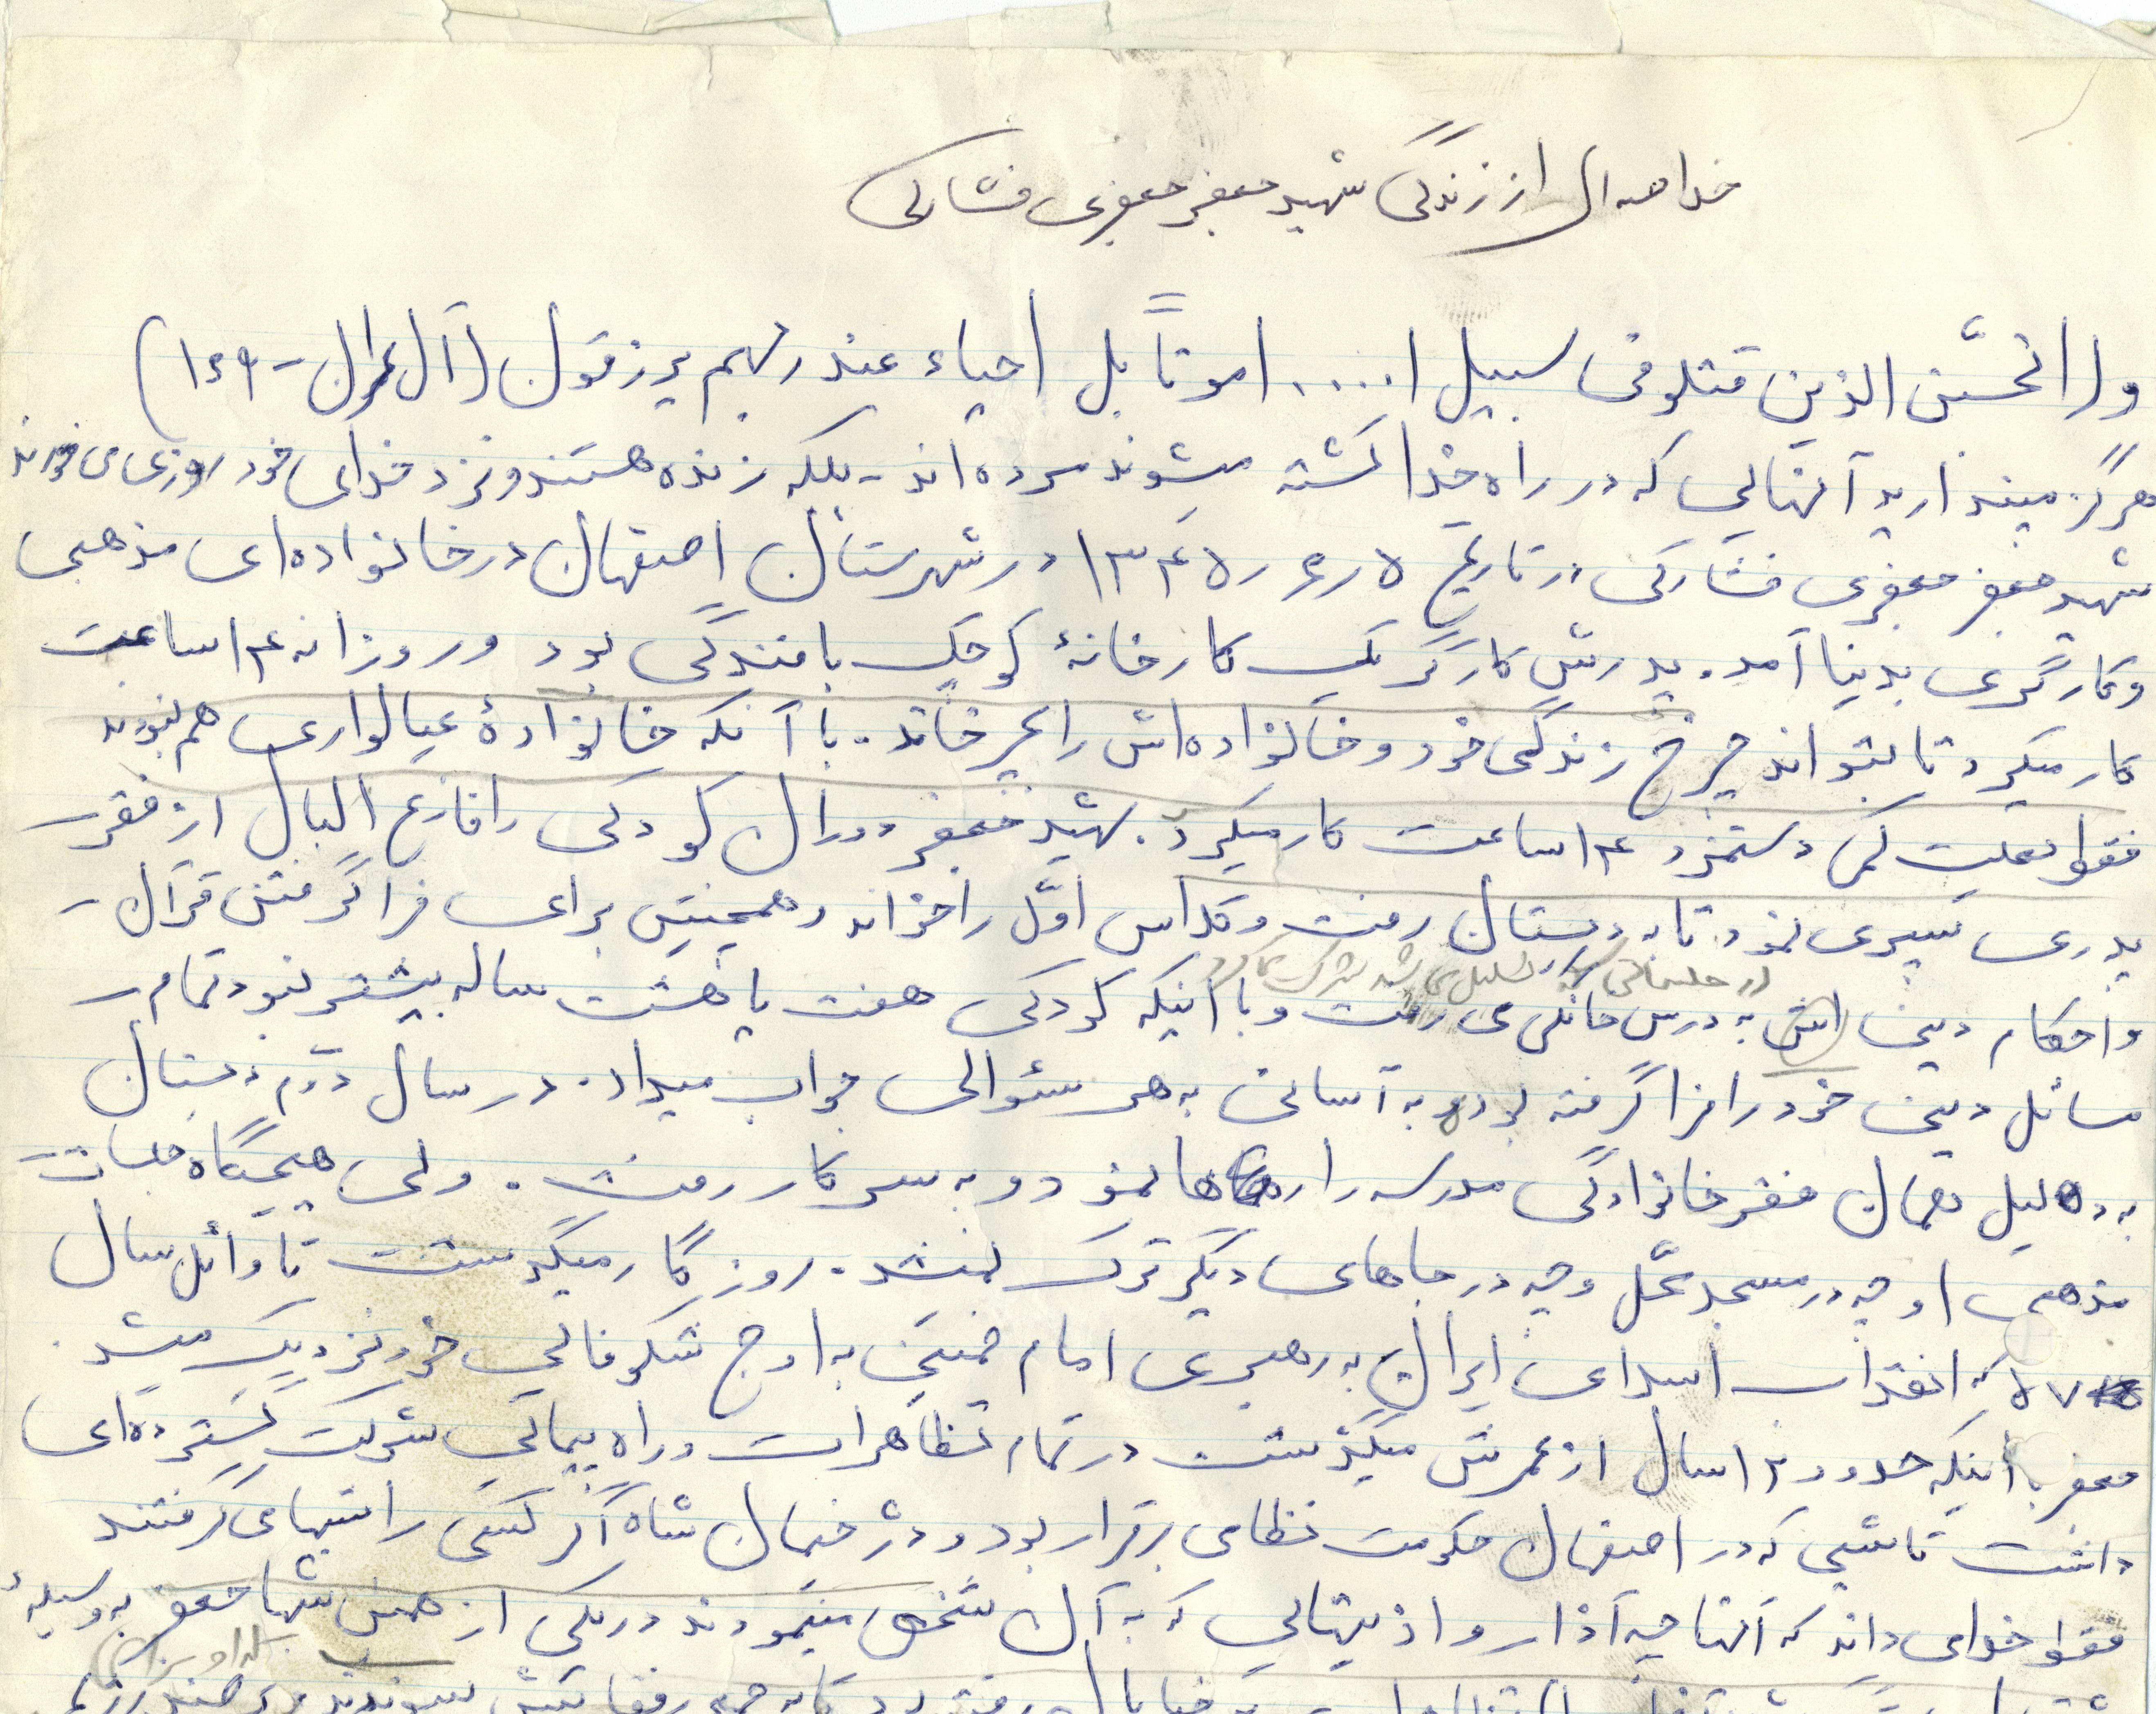 خلاصه ای از زندگی شهید جعفر جعفری فشارکی
ولا تحسّبن الذین قتلو فی سبیل ا.... امواتاً بل احیاء عند ربهم یرزقون (آل عمران - ۱۶۹)
هرگز مپندارید آنهائی که در راه خدا کشته میشوند مرده اند - بلکه زنده هستند و نزد خدای خود روزی می خورند
شهید جعفر جعفری فشارکی در تاریخ ۵ر۶ر۱۳۴۵ در شهرستان اصفهان در خانواده ای مذهبی
و کارگری بدنیا آمد. پدرش کارگر یک کارخانهٔ کوچک بافندگی بود و روزانه ۱۴ ساعت
کار میکرد تا بتواند چرخ زندگی خود و خانواده اش را بچرخاند. با آنکه خانوادهٔ عیالواری هم نبودند
فقط بعلت کمی دستمزد ۱۴ ساعت کار میکرد. شهید جعفر دوران کودکی را فارغ البال از فقر
پدری سپری نمود تا به دبستان رفت و کلاس اوّل را خواند و همچنین برای فرا گرفتن قرآن -
در جلساتی که تشکیل می شد شرکت می کرد
و احکام دینی اش به درس خانگی می رفت و با اینکه کودکی هفت یا هشت ساله بیشتر نبود تمام
مسائل دینی خود را فرا گرفته بود و به آسانی به هر سئوالی جواب میداد. در سال دوّم دبستان
به دلیل همان فقر خانوادگی مدرسه را رها نمود و به سر کار رفت. ولی هیچگاه جلسات
مذهبی او چه در مسجد محّل و چه در جاهای دیگر ترک نشد. روزگار میگذشت تا اوائل سال
۵۷ که انقلاب اسلامی ایران به رهبری امام خمینی به اوج شکوفائی خود نزدیک میشد.
جعفر با اینکه حدود ۱۲ سال از عمرش میگذشت در تمام تظاهرات و راه پیمائی شرکت گسترده ای
داشت تا شبی که در اصفهان حکومت نظامی برقرار بود و دژخیمان شاه اگر کسی را تنها می گرفتند
فقط خدا می داند که آنها چه آذار و اذیتهائی که به آن شخص مینمودند در یکی از همین شبها جعفر به وسیلهٔ